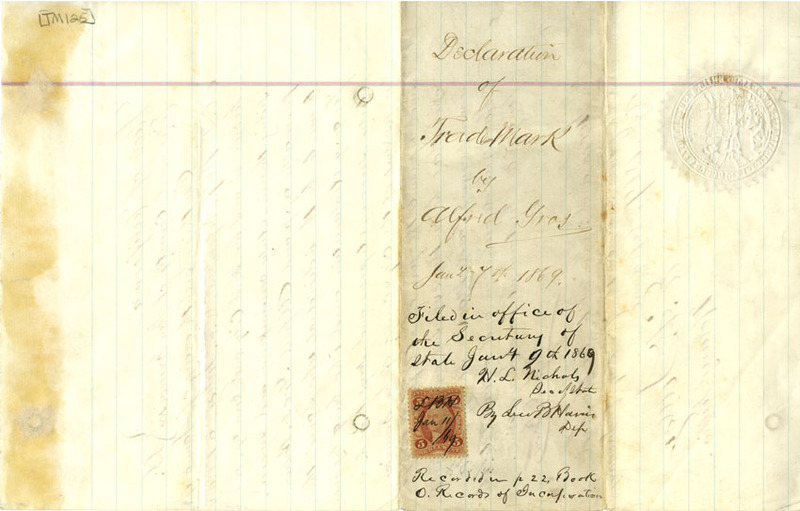 [TM125]
Declaration
of
Trade Mark
by
Alfred Gros.
Jany 7th 1869.
Filed in office of
the Secretary of
State Jany 9th 1869
H. L. Nichols
Sec of State
By Lew B Harris
Dep
LBH
Jan 11
/69
5 5
Recorded in p 22, Book
O. Records of Incorporation